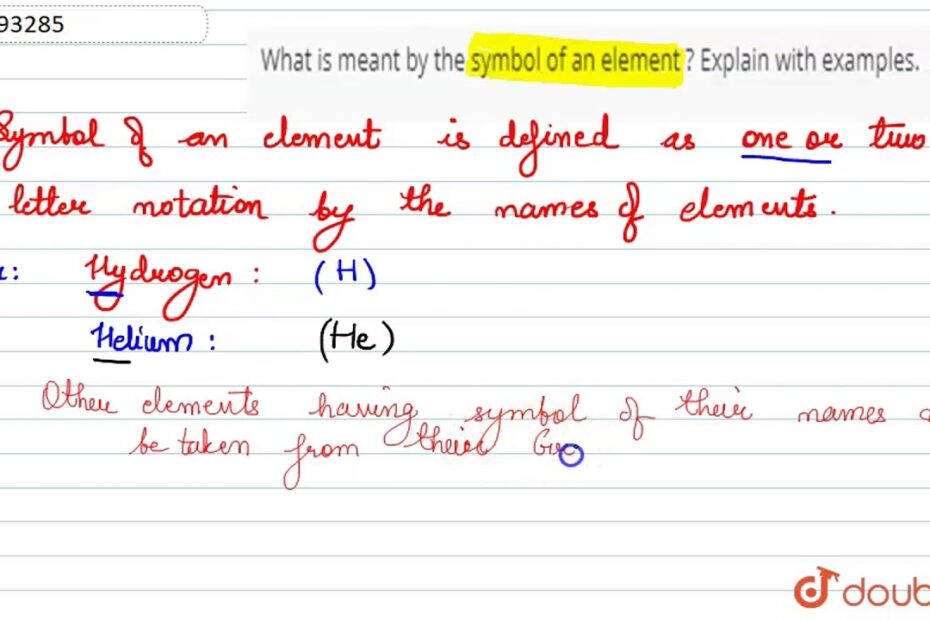 93285
What is meant by the symbol of an element ? Explain with examples.
Symbol of an element is defined as one or two
letter notation by the names of elements.
Hydrogen : (H)
Helium : (He)
Other elements having symbol of their names
be taken from their
doub